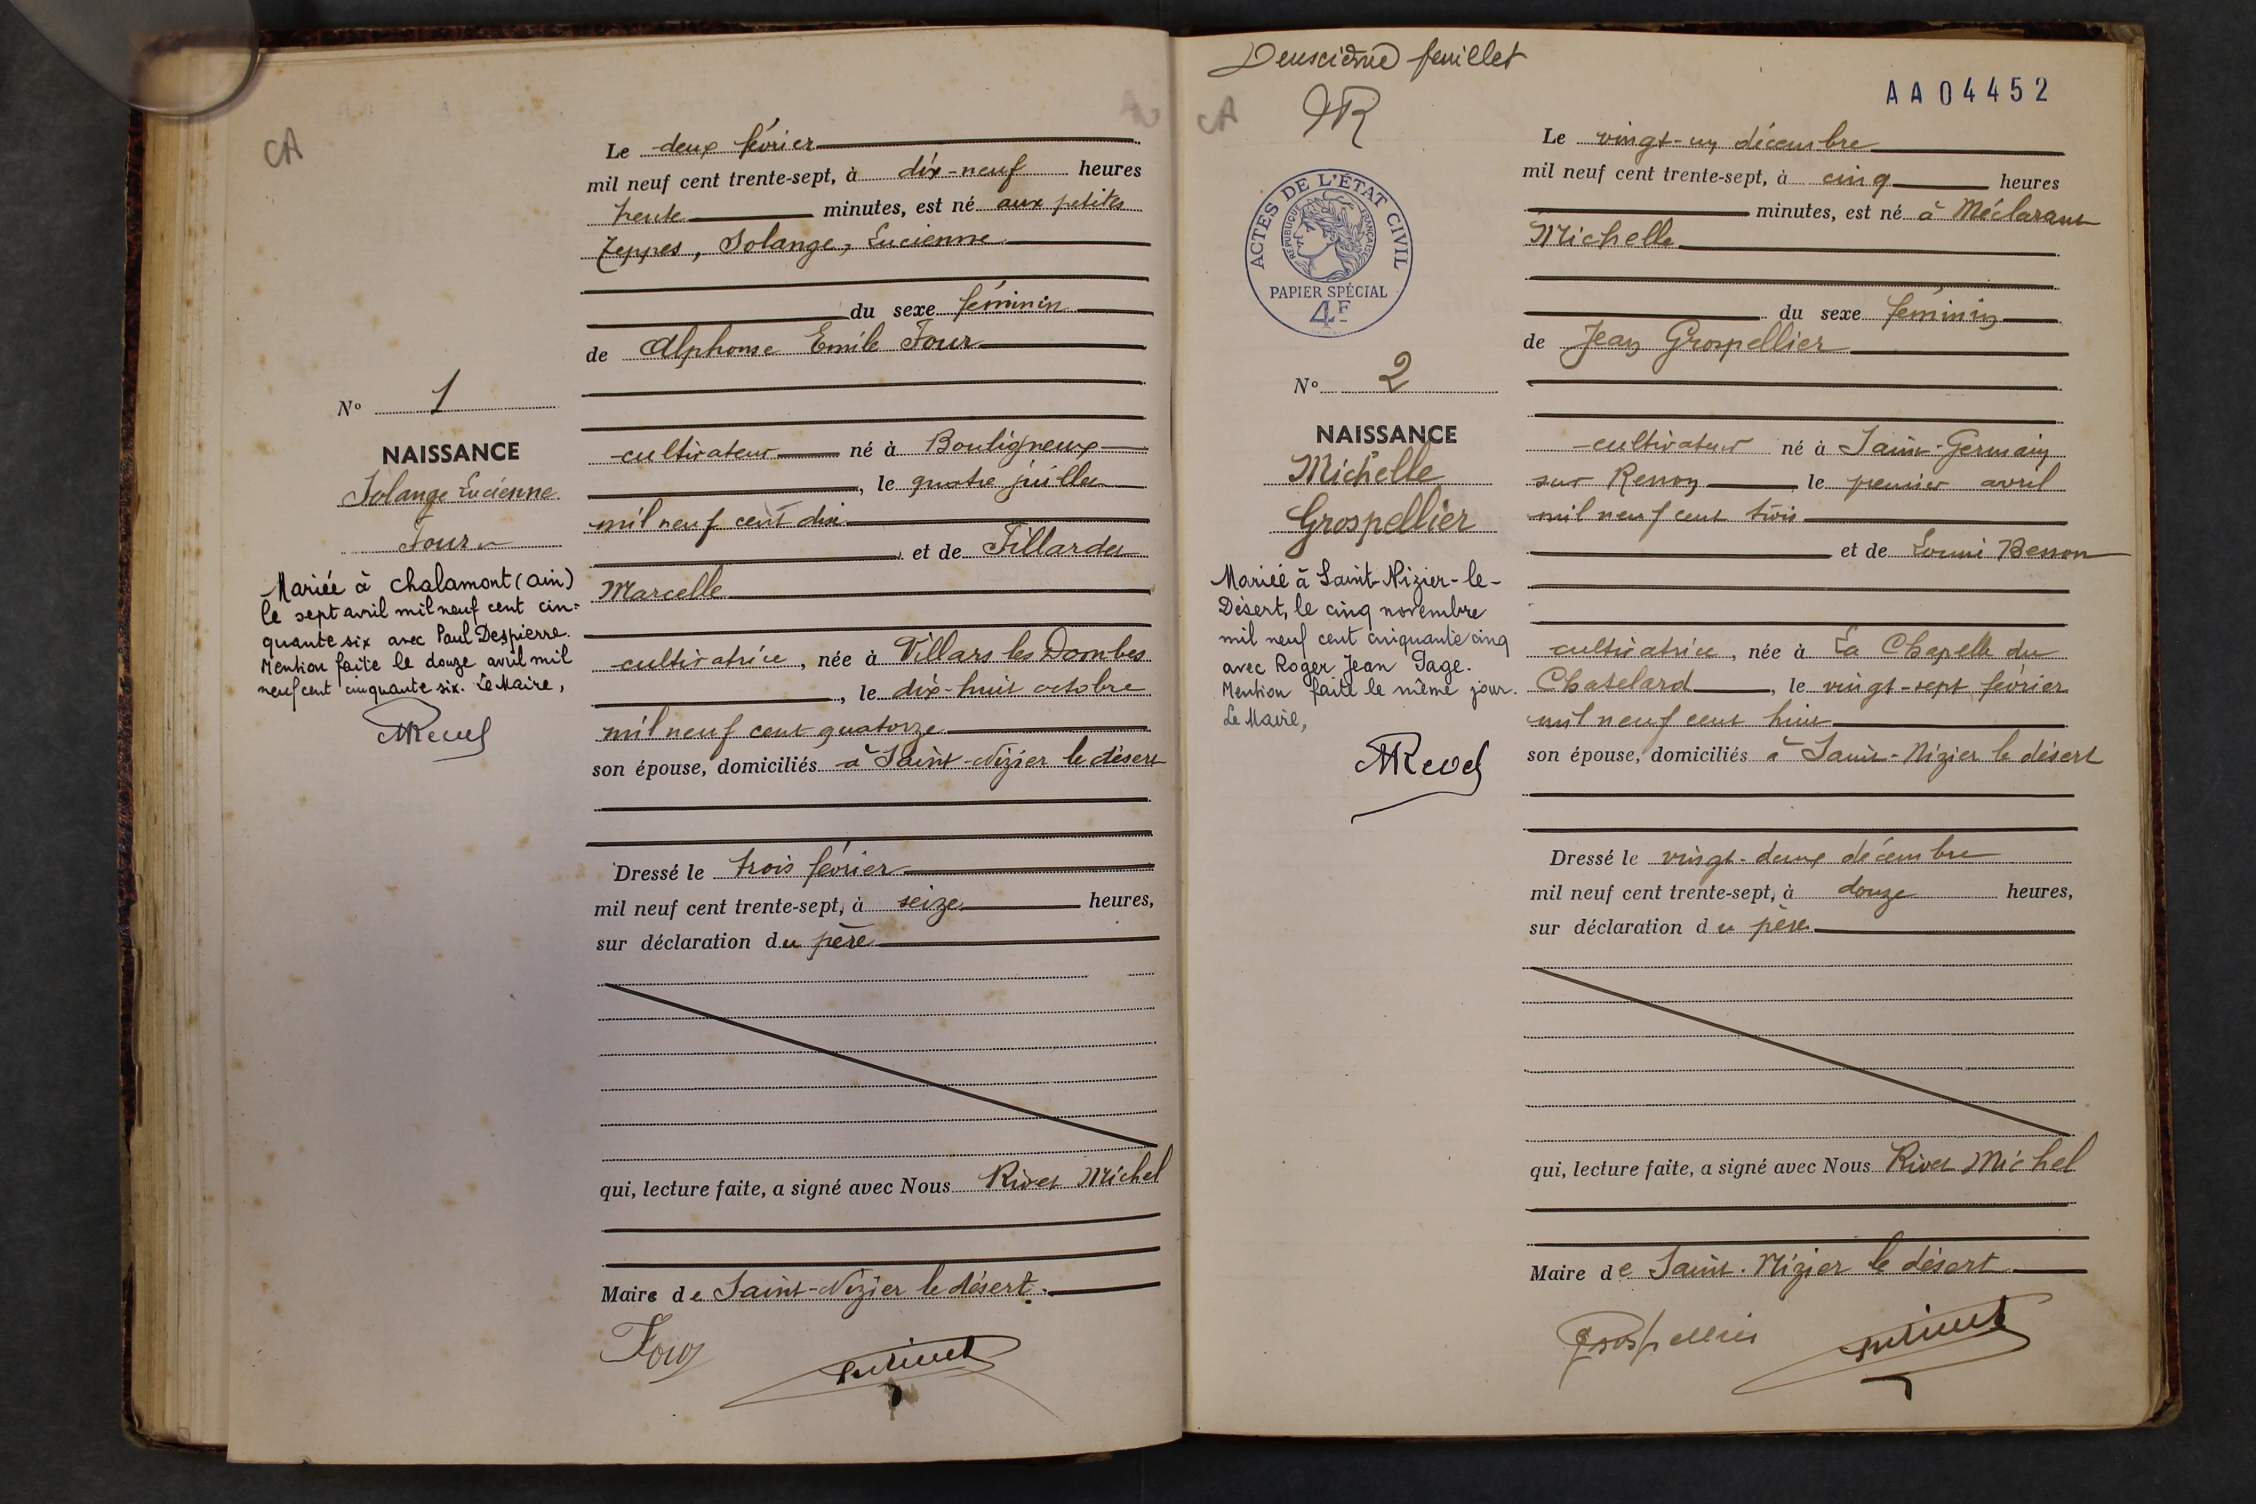 CA
Le deux février
mil neuf cent trente-sept, à dix-neuf heures
trente minutes, est né aux petites
Zeppes, Solange, Lucienne
du sexe féminin
de Alphonse Emile Four
cultivateur né à Bouligneux
, le quatre juillet
mil neuf cent dix
et de Fillardet
Marcelle
cultivatrice, née à Villars les Dombes
, le dix-huit octobre
mil neuf cent quatorze
son épouse, domiciliés à Saint-Nizier le désert
Dressé le trois février
mil neuf cent trente-sept, à seize heures,
sur déclaration du père
qui, lecture faite, a signé avec Nous Rivet Michel
Maire de Saint-Nizier le désert.
Four
No 1
NAISSANCE
Solange Lucienne
Four
Mariée à Chalamont (Ain)
le sept avril mil neuf cent cin=
quante six avec Paul Despierre.
Mention faite le douze avril mil
neuf cent cinquante six. Le Maire,
Deuxième feuillet
CA
AA04452
ACTES DE L'ÉTAT CIVIL
RÉPUBLIQUE FRANÇAISE
PAPIER SPÉCIAL
4F
No 2
NAISSANCE
Michelle
Grospellier
Mariée à Saint-Nizier-le-
Désert, le cinq novembre
mil neuf cent cinquante cinq
avec Roger Jean Page.
Mention faite le même jour.
Le Maire,
Le vingt-un décembre
mil neuf cent trente-sept, à cinq heures
minutes, est né à
Michelle
du sexe féminin
de Jean Grospellier
cultivateur né à Saint-Germain
sur Renon le premier avril
mil neuf cent trois
et de Besson
cultivatrice, née à La Chapelle du
Chatelard, le vingt-sept février
mil neuf cent huit
son épouse, domiciliés à Saint-Nizier le désert
Dressé le vingt-deux décembre
mil neuf cent trente-sept, à douze heures,
sur déclaration du père
qui, lecture faite, a signé avec Nous Rivet Michel
Maire de Saint-Nizier le désert
Grospellier